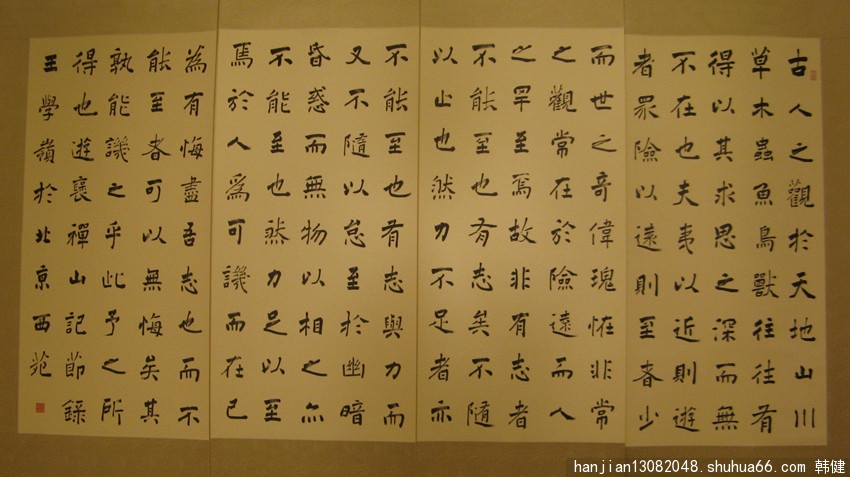 古人之觀於天地山川
草木蟲魚鳥獸往往有
得以其求思之深而無
不在也夫夷以近則遊
者眾險以遠則至者少
而世之奇偉瑰怪非常
之觀常在於險遠而人
之罕至焉故非有志者
不能至也有志矣不隨
以止也然力不足者亦
不能至也有志與力而
又不隨以怠至於幽暗
昏惑而無物以相之亦
不能至也然力足以至
焉於人為可譏而在己
為有悔盡吾志也而不
能至者可以無悔矣其
孰能譏之乎此予之所
得也遊褒禪山記節錄
王學嶺於北京西苑
hanjian13082048.shuhua66.com 韩健